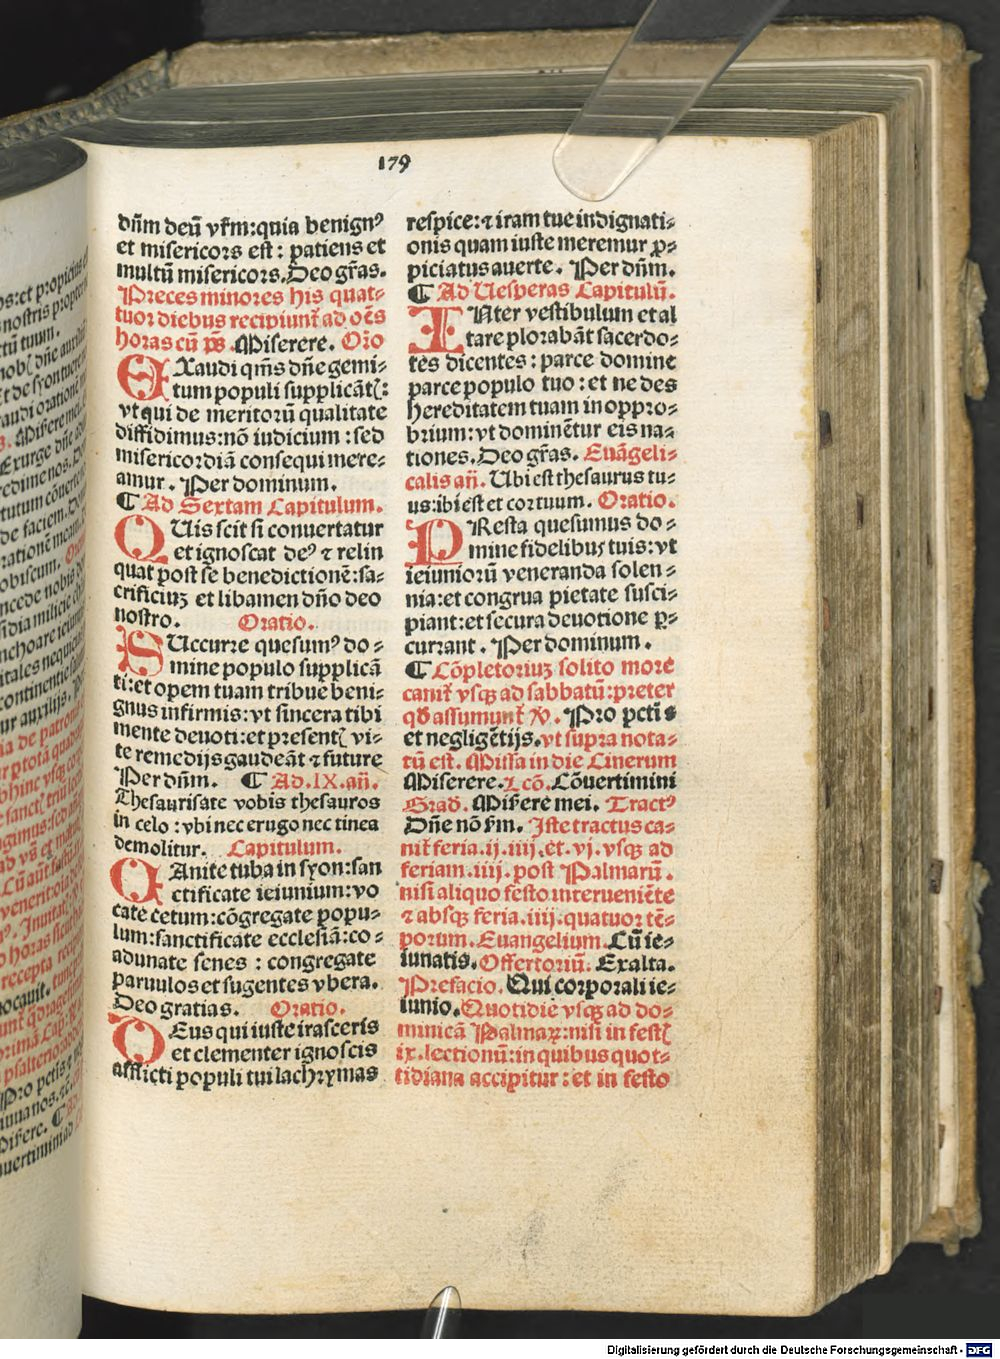 179
dñm deũ vr̃m:quia benignꝰ
et misericors est: patiens et
multũ misericors. Deo gr̃as.
Preces minores his quat⸗
tuor diebus recipiunt̃ ad oẽs
horas cũ p̃s. Miserere. Or̃o
EXaudi qm̃s dñe gemi⸗
tum populi supplicãtꝭ:
vt qui de meritorũ qualitate
diffidimus:nõ iudicium:sed
misericordiã consequi mere⸗
amur. Per dominum.
¶ Ad Sextam Capitulum.
QUis scit si conuertatur
et ignoscat deꝰ ⁊ relin
quat post se benedictionẽ:sa⸗
crificiuꝫ et libamen dño deo
nostro. Oratio.
SUccurre quesumꝰ do⸗
mine populo supplicã
ti:et opem tuam tribue beni⸗
gnus infirmis:vt sincera tibi
mente deuoti:et presentꝭ vi⸗
te remedijs gaudeãt ⁊ future
Per dñm. ¶ Ad.IX.añ.
Thesaurisate vobis thesauros
in celo:vbi nec erugo nec tinea
demolitur. Capitulum.
CAnite tuba in syon:san
ctificate ieiunium:vo
cate cetum:cõgregate popu⸗
lum:sanctificate ecclesiã:co⸗
adunate senes: congregate
paruulos et sugentes vbera.
Deo gratias. Oratio.
DEus qui iuste irasceris
et clementer ignoscis
afflicti populi tui lachrymas
respice:⁊ iram tue indignati⸗
onis quam iuste meremur ꝓ⸗
piciatus auerte. Per dñm.
¶ Ad Uesperas Capitulũ.
INter vestibulum et al
tare plorabãt sacerdo⸗
tes dicentes: parce domine
parce populo tuo:et ne des
hereditatem tuam in oppro⸗
brium:vt dominẽtur eis na⸗
tiones. Deo gr̃as. Euãgeli⸗
calis añ. Ubi est thesaurus tu⸗
us:ibi est et cor tuum. Oratio.
PResta quesumus do⸗
mine fidelibus tuis:vt
ieiuniorũ veneranda solen⸗
nia:et congrua pietate susci⸗
piant:et secura deuotione ꝑ⸗
currant. Per dominum.
¶ Cõpletoriuꝫ solito more
canit̃ vsqꝫ ad sabbatũ:preter
qđ assumunt̃ V̾. Pro pctĩs
et negligẽtijs. vt supra nota⸗
tũ est. Missa in die Cinerum
Miserere. Lcõ. Cõuertimini
Građ. Miserere mei. Tractꝰ
Dñe nõ sm̃. Iste tractus ca⸗
nit̃ feria.ij.iiij.et.vj.vsqꝫ ad
feriam.iiij.post Palmarũ.
nisi aliquo festo interueniẽte
⁊ absqꝫ feria.iiij.quatuor tẽ⸗
porum. Euangelium. Cũ ie⸗
iunatis. Offertoriũ. Exalta.
Prefacio. Qui corporali ie⸗
iunio. Quotidie vsqꝫ ad do⸗
minicã Palmaꝝ:nisi in festꝭ
ix.lectionũ:in quibus quot⸗
tidiana accipitur:et in festo
Digitalisierung gefördert durch die Deutsche Forschungsgemeinschaft - DFG